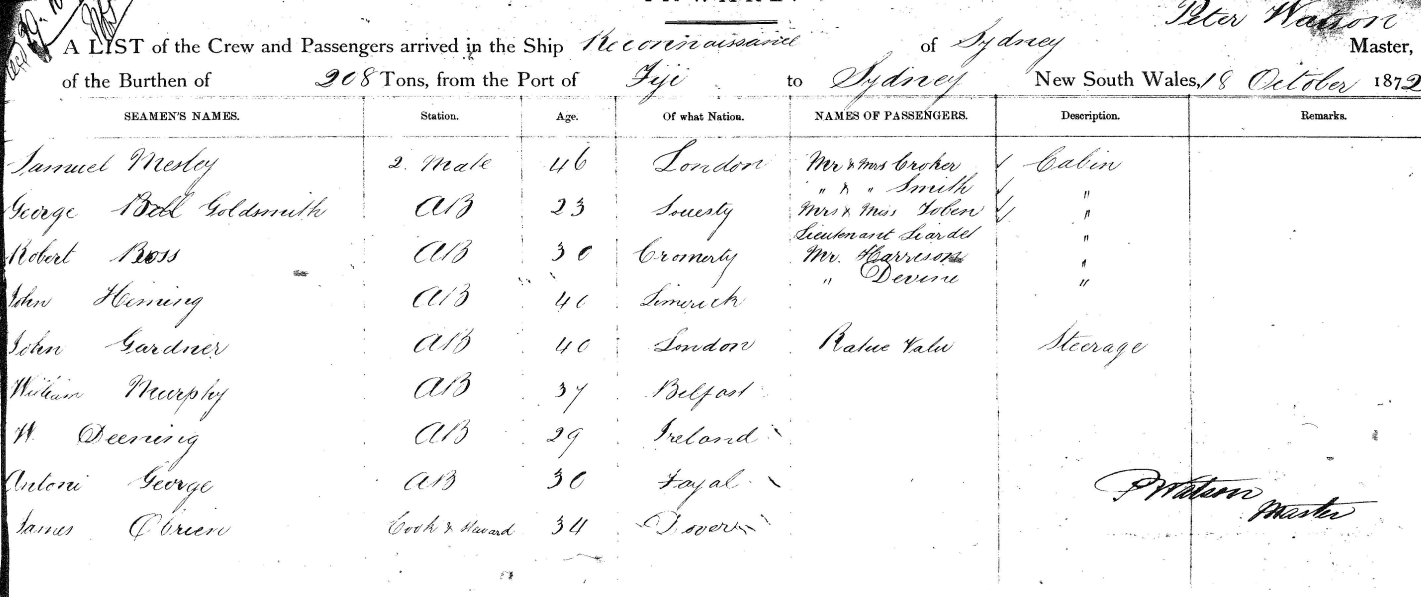 Peter Watson
A LIST of the Crew and Passengers arrived in the Ship Reconnaissance of Sydney Master,
of the Burthen of 208 Tons, from the Port of Fiji to Sydney New South Wales, 18 October 1872
SEAMEN'S NAMES. Station. Age. Of what Nation. NAMES OF PASSENGERS. Description. Remarks.
Samuel Mesley 2. Mate 46 London Mr & Mrs Croker Cabin
" & " Smith "
George Goldsmith AB 23 Mrs & Miss Tobin "
Lieutenant Liardet "
Robert Ross AB 30 Cromerty Mr. Harrison "
" Devine "
John Heming AB 40 Limerick
John Gardner AB 40 London Ratue Valu Steerage
William Murphy AB 37 Belfast
W. Deening AB 29 Ireland
Antoni George AB 30 Fayal
P Watson
Master
James O'Brien Cook & Steward 34 Dover